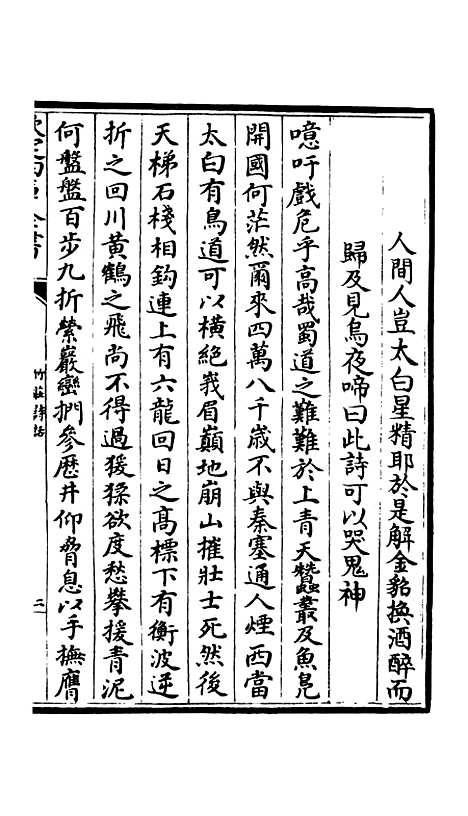 人間人豈太白星精耶於是解金貂換酒醉而
歸及見烏夜啼曰此詩可以哭鬼神
噫吁戲危乎高哉蜀道之難難於上青天蠶叢及魚鳧
開國何茫然爾來四萬八千歲不與秦塞通人煙西當
太白有鳥道可以橫絶峩眉巔地崩山摧壯士死然後
天梯石棧相鈎連上有六龍回日之高標下有衝波逆
折之回川黃鶴之飛尚不得過猨猱欲度愁攀援青泥
何盤盤百步九折縈巖巒捫參歷井仰脅息以手撫膺
欽定四庫全書
竹莊詩話